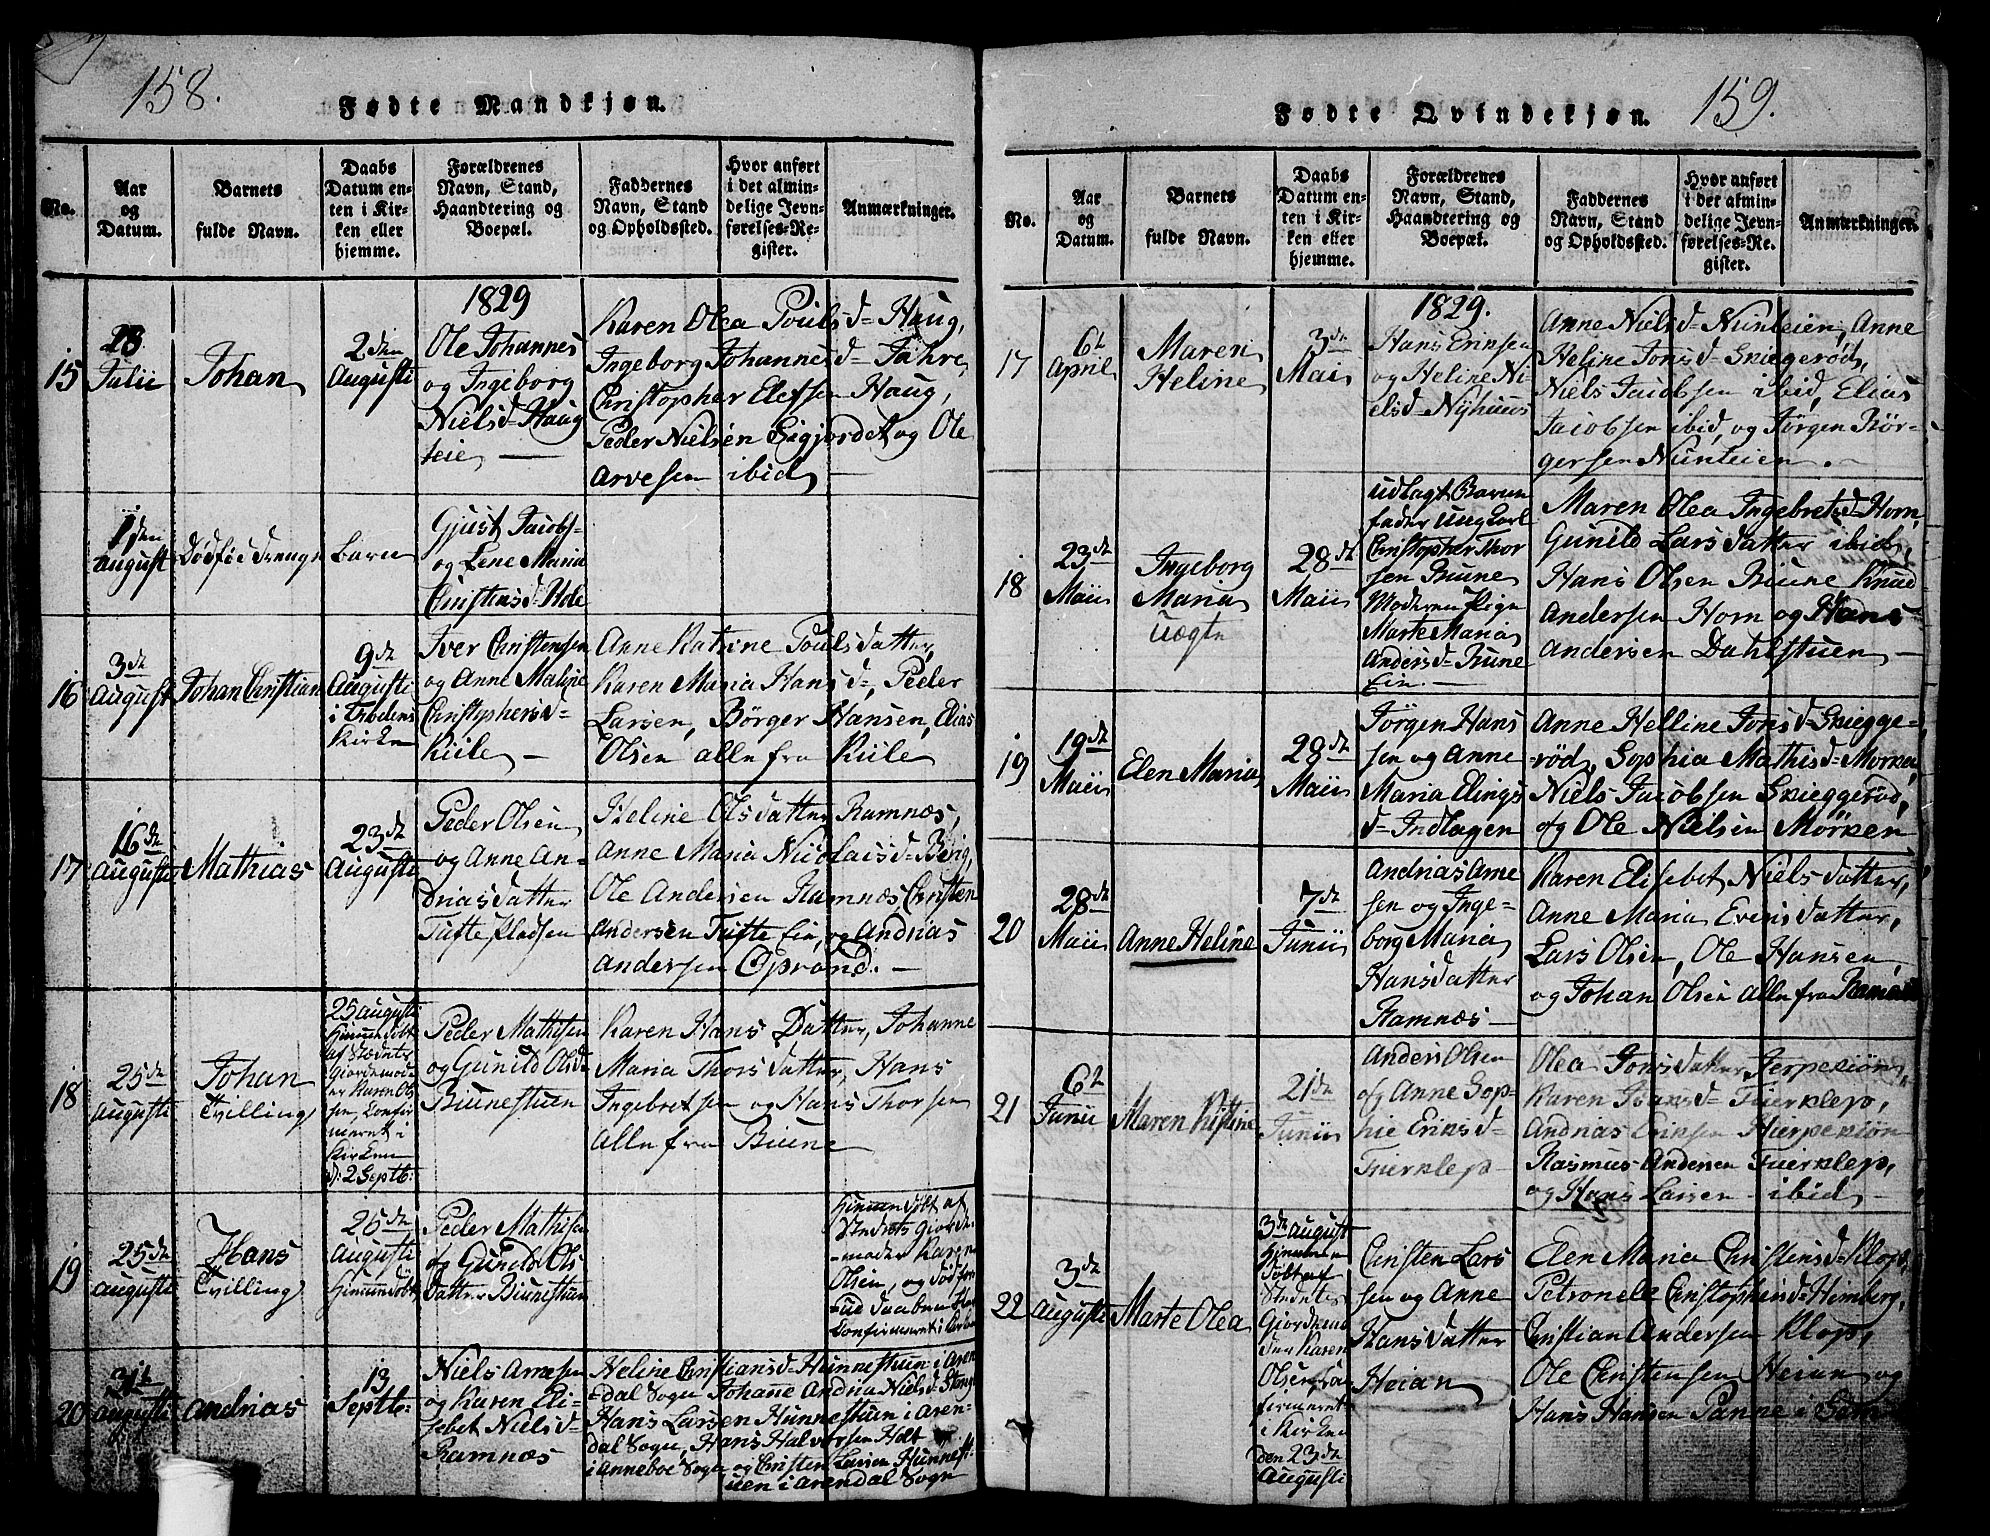 158.
Fødte Mandkjøn.
No.
Aar
og
Datum.
Barnets
fulde Navn.
Daabs
Datum en-
ten i Kir-
ken eller
hjemme.
Forældrenes
Navn, Stand,
Haandtering og
Boepæl.
Faddernes
Navn, Stand
og Opholdssted.
Hvor anført
i det almin-
delige Jevn-
førelses-Re-
gister.
Anmærkninger.
1829
15
28
Julii
Johan
2den
Augusti
Ole Johannes
og Ingeborg
Nielsd= Haug
teie
Karen Olea Poulsd= Haug,
Ingeborg Johannesd= Jahre
Christopher Elefsen Haug,
Peder Nielsen Gigjordet og Ole
Arvesen ibid
1den
August
Dødfødt drenge
Barn
Gjust Jacobs-
og Lene Maria
Christensd= Hole
16
3de
August
Johan Christian
9de
Augusti
i
Kirken
Iver Christensen
og Anne Maline
Christophersd=
Kiile
Anne Katrine Poulsdatter,
Karen Maria Hansd=, Peder
Larsen, Børger Hansen, Elias
Olsen alle fra Kiile
17
16de
Augusti
Mathias
23de
Augusti
Peder Olsen
og Anne An-
driasdatter
Tufte Pladsen
Heline Olsdatter Ramnæs,
Anne Maria Nicolaisd= Berg,
Ole Andersen Ramnæs, Christen
Andersen Tufte Eie, og Andrias
Andersen Oprand.
18
25de
Augusti
Johan
Tvilling
25 Augusti
Hiemmedøbt
af Stedets
Giordemod
er Karen Ol
sen, Confir
meret i
Kirken
d: 2 Septb:
Peder Mathisen
og Gunild Olsd=
Biunestuen
Karen Hans Datter, Johanne
Maria Thorsdatter, Hans
Ingebretsen og Hans Thorsen
Alle fra Biune
19
25de
Augusti
Hans
Tvilling
25de
Augusti
Hiemmedøbt
Peder Mathisen
og Gunild Ols
datter Biunestuen
Hiemmedøbt af
Stedets Giorde-
-moder Karen
Olsen, og død for-
Confirmeret i Kirken
20
31te
Augusti
Andrias
13
Septb=
Niels Arnesen
og Karen Eli-
sebet Nielsd=
Ramnæs
Heline Christiansd= Hunnestuen i Aren
=dal Sogn Johane Andria Nielsd= Stang
Hans Larsen Hunnestuen i Aren-
dal Sogn, Hans Halvorsen Holt
i Anneboe Sogn og Christen Larsen Hunnest
uen i Arendal Sogn
159.
Fødte Qvindekjøn.
No.
Aar
og
Datum.
Barnets
fulde Navn.
Daabs
Datum en-
ten i Kir-
ken eller
hjemme.
Forældrenes
Navn, Stand,
Haandtering og
Boepæl.
Faddernes
Navn, Stand
og Opholdssted.
Hvor anført
i det almin-
delige Jevn-
førelses-Re-
gister.
Anmærkninger.
1829.
17
6te
April
Maren
Heline
3de
Mai
Hans Eriksen
og Heline Ni-
elsd= Nyhuus
Anne Nielsd= Nunteien, Anne
Heline Jonsd= Skieggerød,
Niels Jacobsen ibid, Elias
Jacobsen ibid, og Jørgen Bør-
gersen Nunteien.
18
23de
Maii
Ingeborg
Maria
uægte
28de
Maii
udlagt Barne
fader Ung Carl
Christopher Thor
sen Biune
Moderen Pige
Marte Maria
Andersd= Biune
Eie.
Maren Olea Ingebretsd= Horn,
Gunild Larsdatter ibid,
Hans Olsen Biune Knud
Andersen Horn og Hans
Andersen Dahlstuen
19
19de
Maii
Elen Maria
28de
Maii
Jørgen Hans
sen og Anne
Maria Elings
d= Indlagen
Anne Helline Jonsd= Skiegge-
rød, Sophia Mathisd= Mørken,
Niels Jacobsen Skieggerød,
og Ole Nielsen Mørken
20
28de
Maii
Anne Heline
7de
Junii
Andrias Arne
sen og Inge-
borg Maria
Hansdatter
Ramnæs
Karen Elisebet Nielsdatter,
Anne Maria Evensdatter,
Lars Olsen, Ole Hansen,
og Johan Olsen Alle fra Ramnæs
21
6te
Junii
Maren Kistine
21de
Junii
Anders Olsen
og Anne Sop-
hie Eriksd=
Fuerklep
Olea Jonsdatter
Karen Fuerklep,
Andrias Eriksen
Rasmus Andersen Fuerklep,
og Hans Larsen ibid
22
3de
Augusti
Marte Olea
3de August
Hiemme-
døbt af
Stedets
Giordemo
der Karen
Olsen, Con
firmeret
i Kirken
den 23de
Augusti
Christen Lars
sen og Anne
Hansdatter
Heian
Elen Maria Christensd= Klop,
Petronele Christophersd= Heimberg,
Christian Andersen Klop,
Ole Christensen Heian og
Hans Hansen Panne i